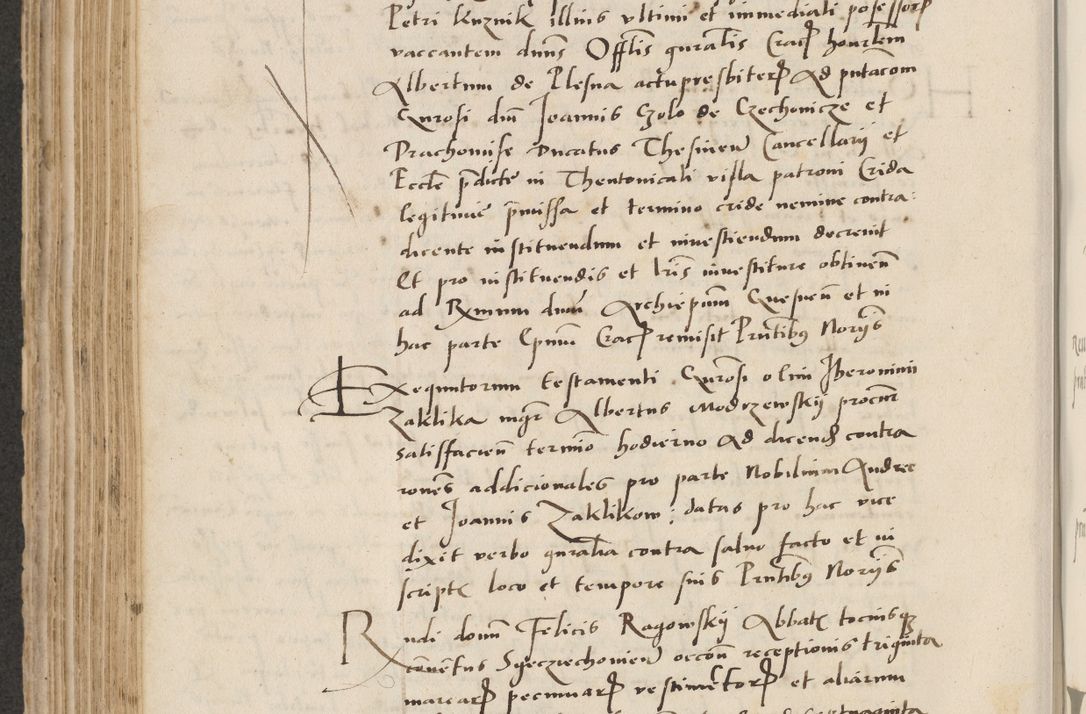 Petri Kuznik illius ultimi et immediati possessorꝭ
vaccantem dnūs Offlīs gnralīs Cracꝭ honrlēm
Albertum de Plesna actu presbiterꝭ Ad pntācom
Gnrosi dnī Joannis Czolo de Czechovicze et
Prachomise Ducatus Thesinen Cancellarij et
Eccle p̄dicte in Thentonicali visla patroni Crida
legitime p̄missa et termino cride nemine contra:
dicente instituendum et investiendum decrevit
Et pro instituendis et lrīs investiture obtinen̄
ad Rmum dnūm Archiepūm Gnesnen̄ et in
hac parte Epūm Cracꝭ remisit Pntībus Norijs
Exequutorum testamenti Gnrosi olim Iheronimi
Zaklika mgr̄ Albertus Modrzewskij procur
satisfacien̄ termīo hodierno Ad dicendꝭ contra
rones addicionales pro parte Nobilium Andree
et Joannis Zaklikow: datas pro hac vice
dixit verbo gnralīa contra salvo facto et in
scriptꝭ loco et tempore suis Pntībus Norijs
Rndi domī Felicis Ragowskij Abbatꝭ tociusqꝫ
cōventus Sgecziechovien occon̄ receptionis triginta
marcarꝭ pecuniarꝭ vestimētorꝭ et aliarum